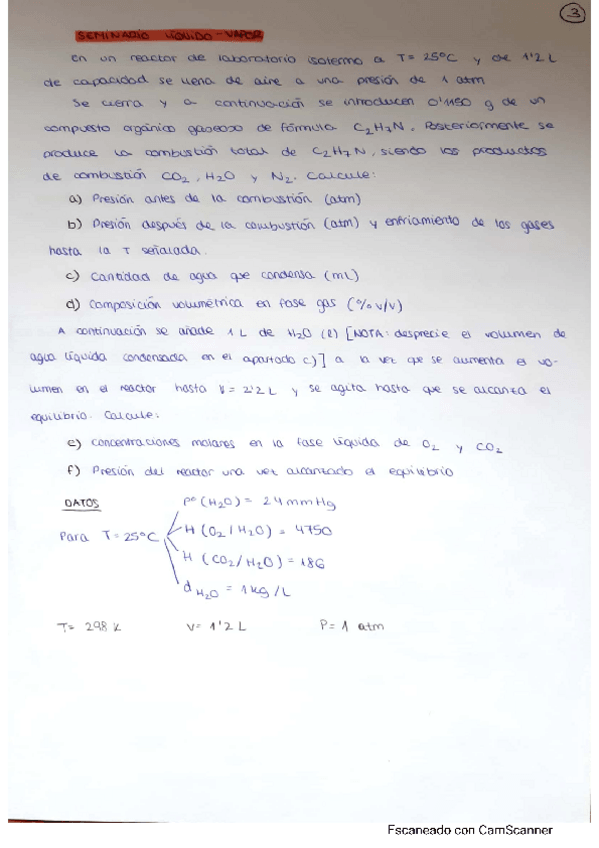 3
SEMINARIO LÍQUIDO-VAPOR
En un reactor de laboratorio isotermo a T= 25°C y de 1'2 L
de capacidad se llena de aire a una presión de 1 atm
Se cierra y a continuación se introducen 0'1150 g de un
compuesto orgánico gaseoso de fórmula C₂H₇N. Posteriormente se
produce la combustión total de C₂H₇N, siendo los productos
de combustión CO₂, H₂O y N₂. Calcule:
a) Presión antes de la combustión (atm)
b) Presión después de la combustión (atm) y enfriamiento de los gases
hasta la T señalada.
c) Cantidad de agua que condensa (mL)
d) Composición volumétrica en fase gas (% v/v)
A continuación se añade 1 L de H₂O (l) [NOTA: desprecie el volumen de
agua líquida condensada en el apartado c)] a la vez que se aumenta el vo-
lumen en el reactor hasta V= 2'2 L y se agita hasta que se alcanza el
equilibrio. Calcule:
e) Concentraciones molares en la fase líquida de O₂ y CO₂
f) Presión del reactor una vez alcanzado el equilibrio
DATOS
Para T= 25°C
P° (H₂O) = 24 mmHg
H (O₂/H₂O) = 4750
H (CO₂/H₂O) = 186
d H₂O = 1 kg/L
T= 298 K V= 1'2 L P= 1 atm
Escaneado con CamScanner